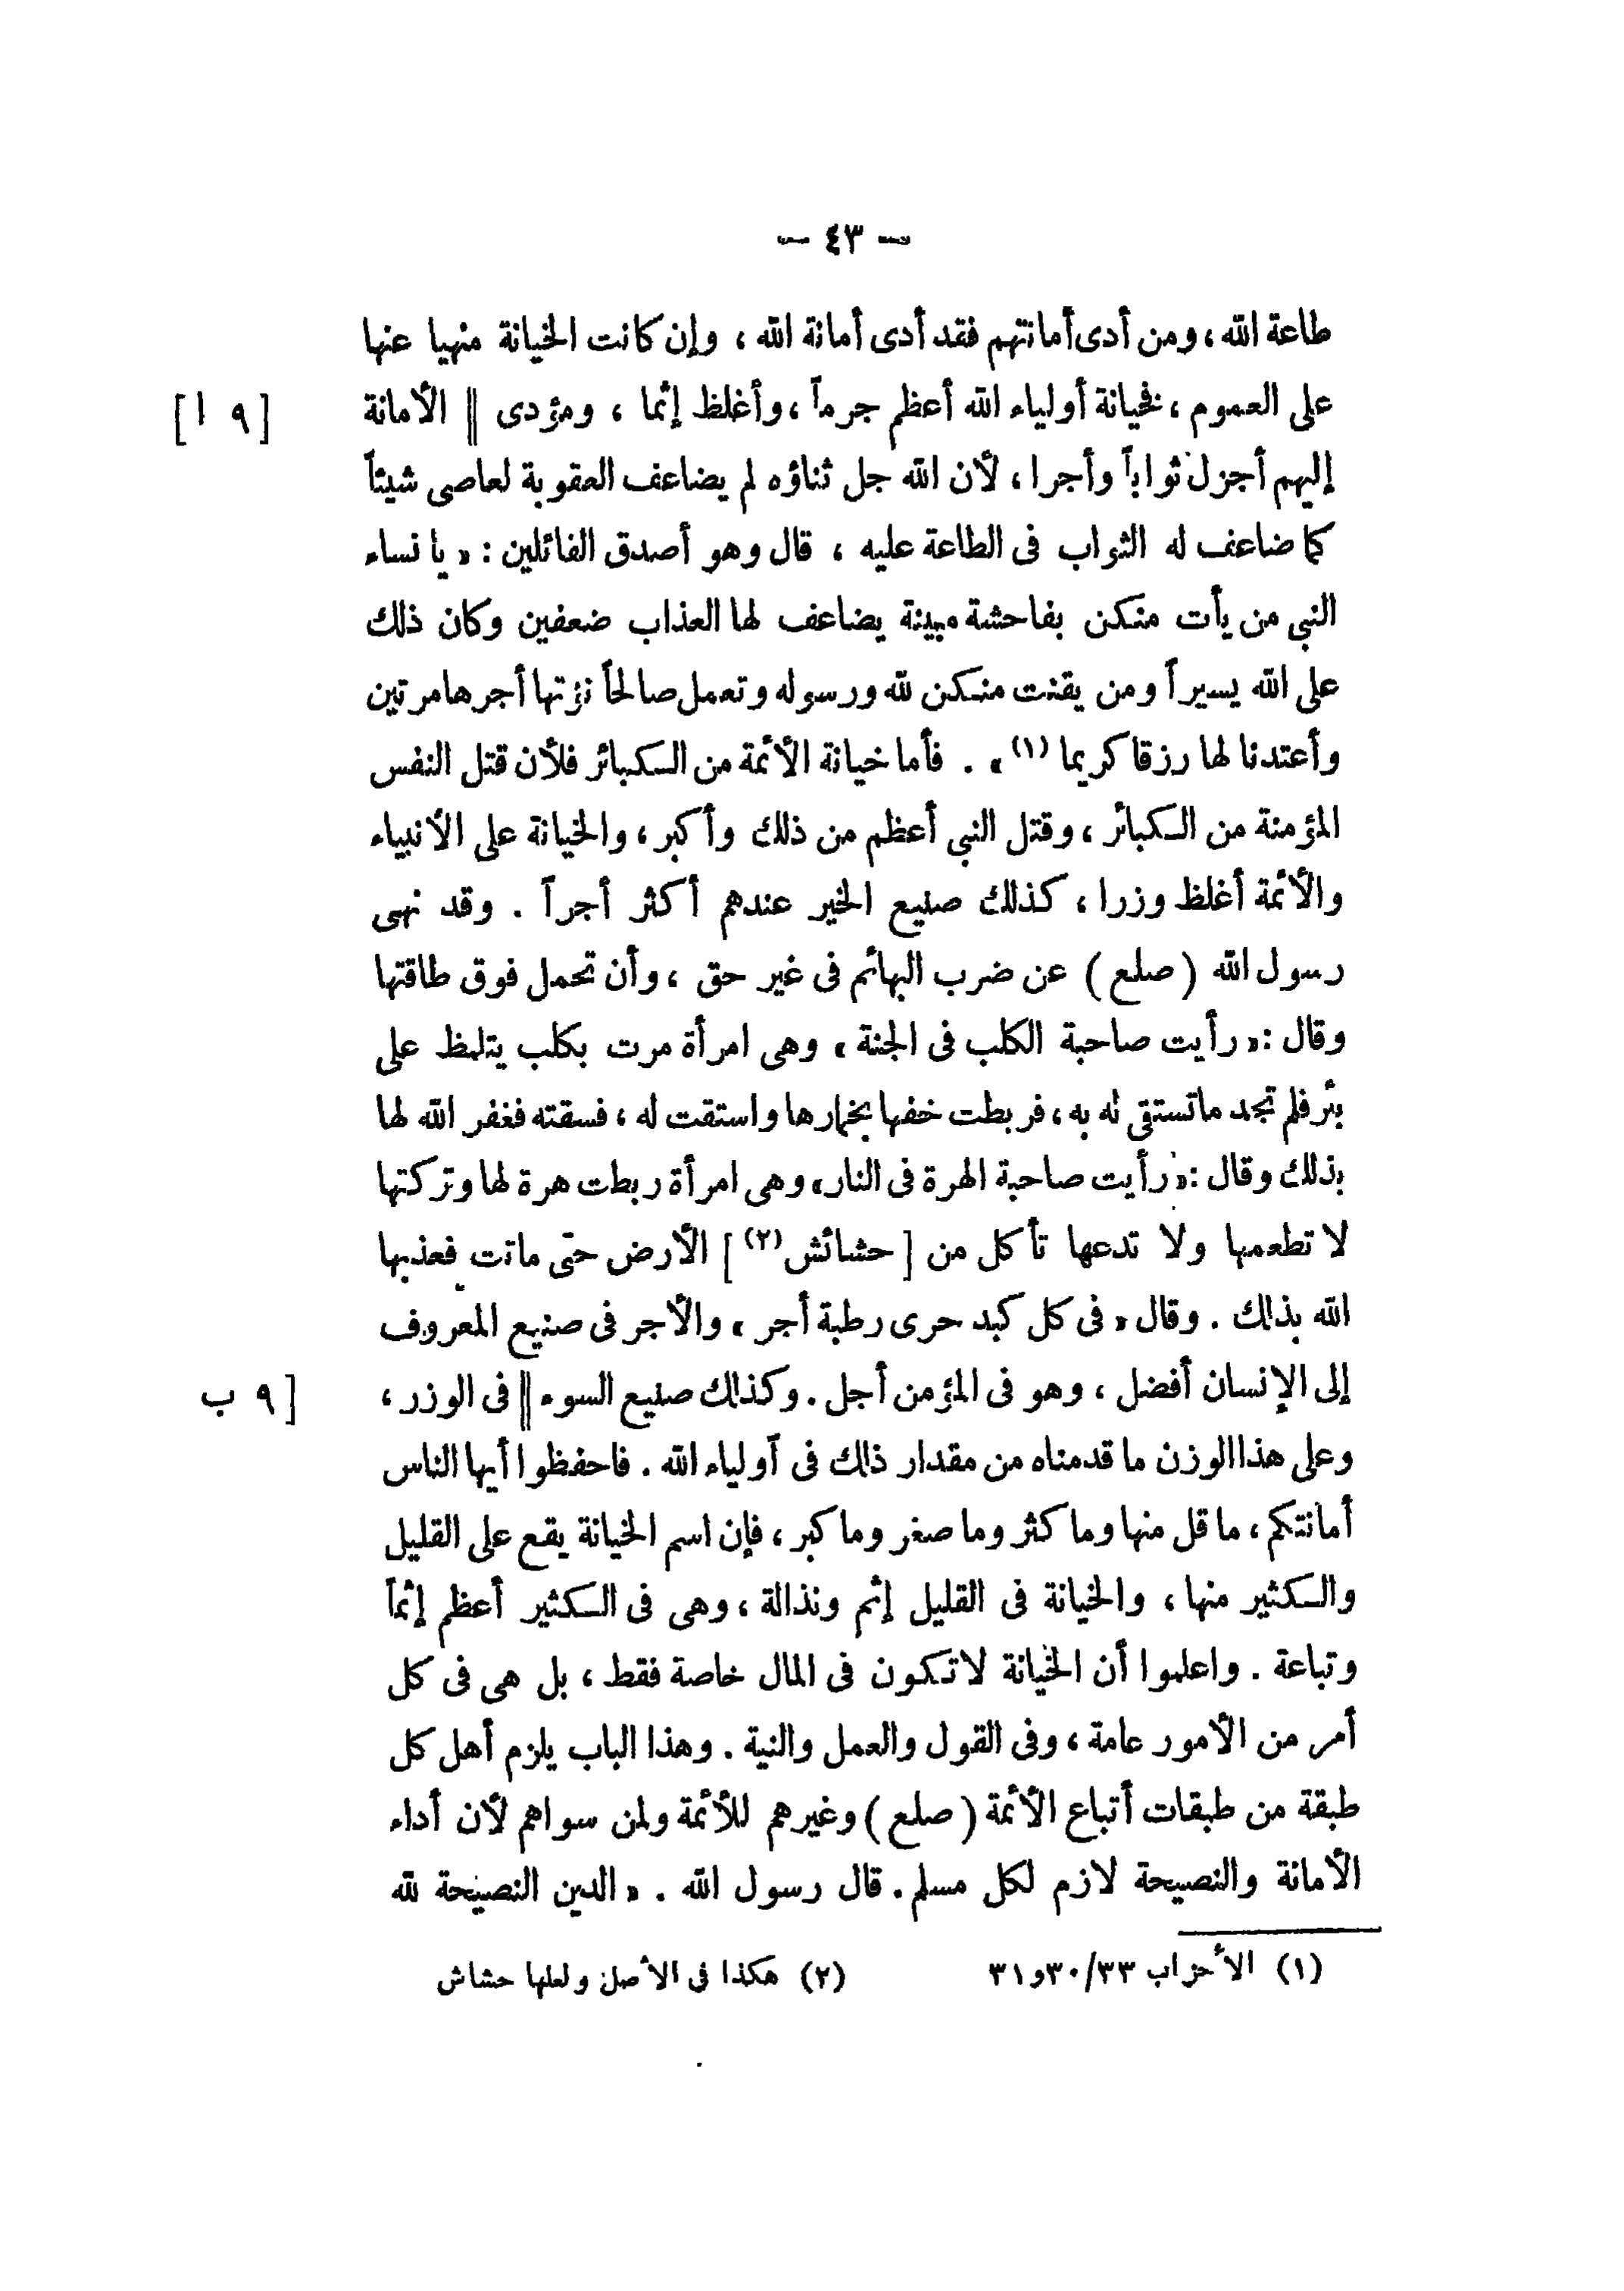 — ٤٣ —
طاعة الله ، ومن أدى أمانتهم فقد أدى أمانة الله ، وإن كانت الخيانة منهيا عنها
على العموم ، فخيانة أولياء الله أعظم جرماً ، وأغلظ إثما ، ومؤدى || الأمانة [ ٩ ا ]
إليهم أجزل ثواباً وأجرا ، لأن الله جل ثناؤه لم يضاعف العقوبة لعاصى شيئاً
كما ضاعف له الثواب فى الطاعة عليه ، قال وهو أصدق القائلين : « يا نساء
النبى من يأت منكن بفاحشة مبينة يضاعف لها العذاب ضعفين وكان ذلك
على الله يسيراً ومن يقنت منكن لله ورسوله وتعمل صالحاً نؤتها أجرها مرتين
وأعتدنا لها رزقا كريما (١) » . فأما خيانة الأئمة من الكبائر فلأن قتل النفس
المؤمنة من الكبائر ، وقتل النبى أعظم من ذلك وأكبر ، والخيانة على الأنبياء
والأئمة أغلظ وزرا ، كذلك صنيع الخير عندهم أكثر أجراً . وقد نهى
رسول الله ( صلع ) عن ضرب البهائم فى غير حق ، وأن تحمل فوق طاقتها
وقال : « رأيت صاحبة الكلب فى الجنة » وهى امرأة مرت بكلب يتلمظ على
بئر فلم تجد ماتستقى له به ، فربطت خفها بخمارها واستقت له ، فسقته فغفر الله لها
بذلك وقال : « رأيت صاحبة الهرة فى النار » وهى امرأة ربطت هرة لها وتركتها
لا تطعمها ولا تدعها تأكل من [ حشائش (٢) ] الأرض حتى ماتت فعذبها
الله بذلك . وقال « فى كل كبد حرى رطبة أجر » والأجر فى صنيع المعروف
إلى الإنسان أفضل ، وهو فى المؤمن أجل . وكذلك صنيع السوء || فى الوزر ، [ ٩ ب
وعلى هذا الوزن ما قدمناه من مقدار ذلك فى أولياء الله . فاحفظوا أيها الناس
أمانتكم ، ما قل منها وما كثر وما صغر وما كبر ، فإن اسم الخيانة يقع على القليل
والكثير منها ، والخيانة فى القليل إثم ونذالة ، وهى فى الكثير أعظم إثماً
وتباعة . واعلموا أن الخيانة لا تكون فى المال خاصة فقط ، بل هى فى كل
أمر من الأمور عامة ، وفى القول والعمل والنية . وهذا الباب يلزم أهل كل
طبقة من طبقات أتباع الأئمة ( صلع ) وغيرهم للأئمة ولمن سواهم لأن أداء
الأمانة والنصيحة لازم لكل مسلم . قال رسول الله . « الدين النصيحة لله
(١) الأحزاب ٣٣/٣٠و٣١ (٢) هكذا فى الأصل ولعلها حشاش